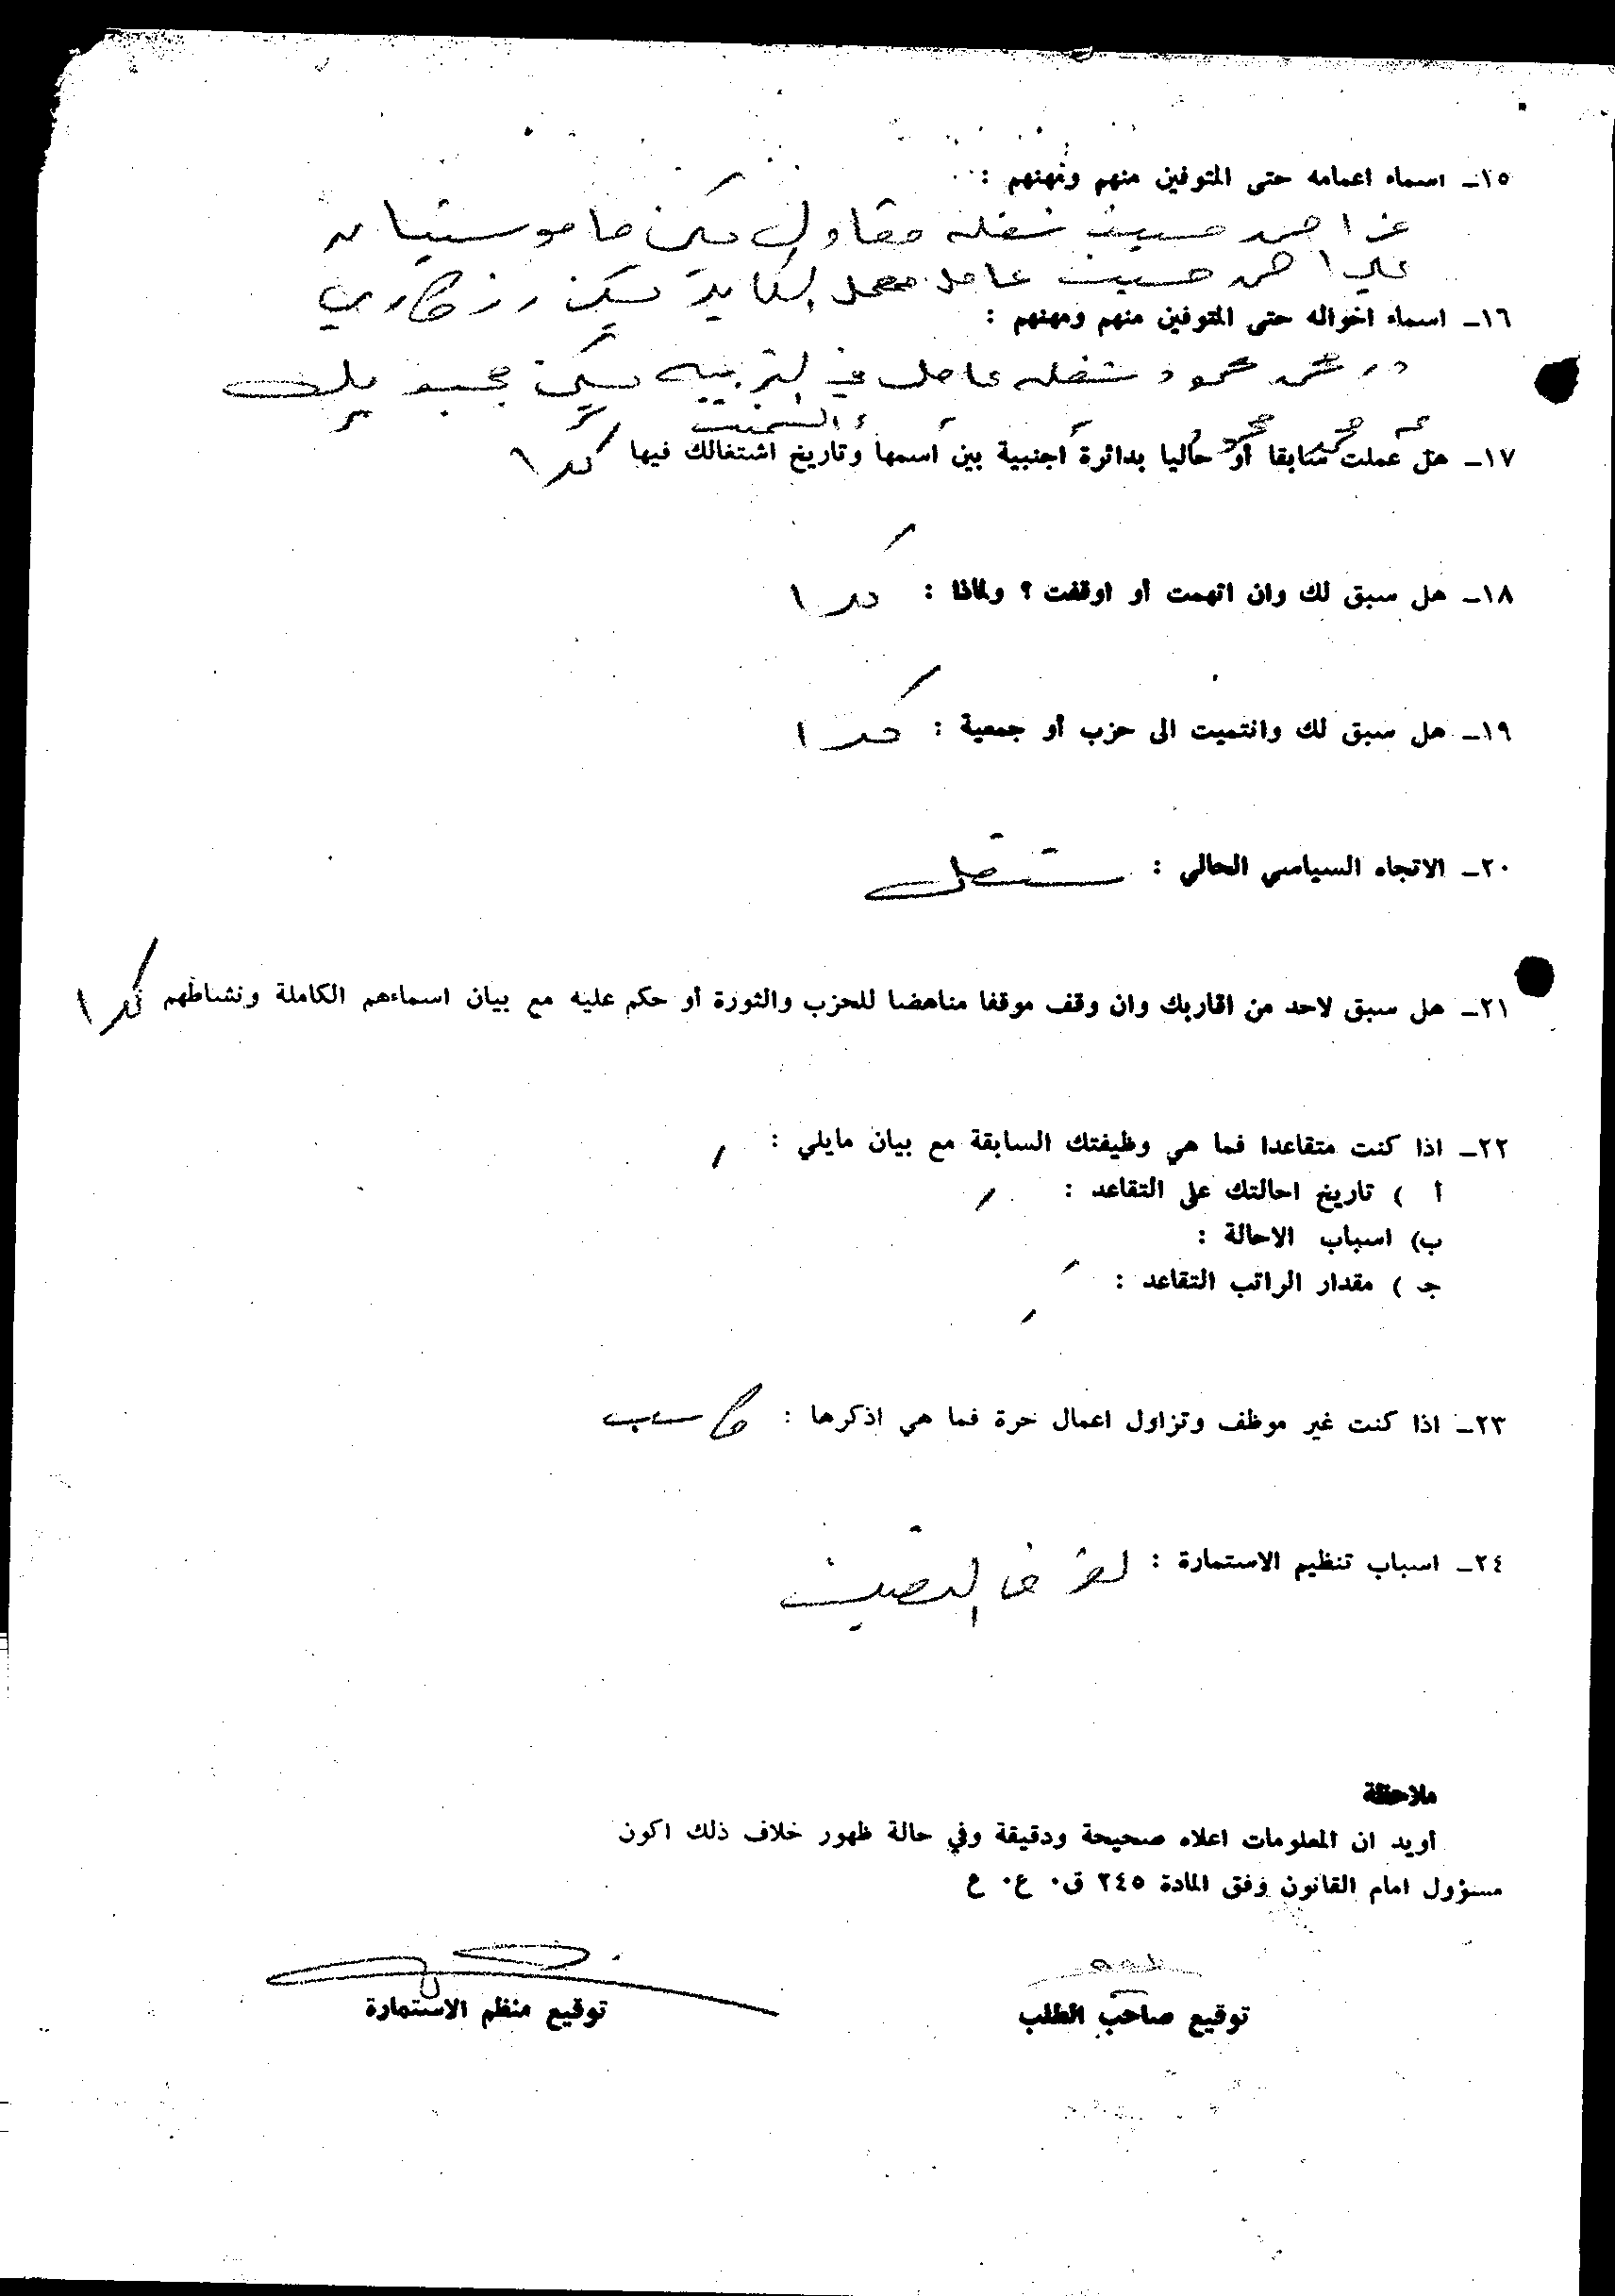 ١٥ـ اسماء اعمامه حتى المتوفين منهم ومهنهم :
احمد حسين شغله مقاول يسكن ماموستيان
علي احمد حسين عامل معمل السكاير يسكن رزكاري
١٦ـ اسماء اخواله حتى المتوفين منهم ومهنهم :
محمد محمود شغله عامل في التربيه يسكن مجيد بيك
محمد محمود السمنت
١٧ـ هل عملت سابقا أو حاليا بدائرة اجنبية بين اسمها وتاريخ اشتغالك فيها كلا
١٨ـ هل سبق لك وان اتهمت أو اوقفت ؟ ولماذا : كلا
١٩ـ هل سبق لك وانتميت الى حزب أو جمعية : كلا
٢٠ـ الاتجاه السياسي الحالي : مستقل
٢١ـ هل سبق لاحد من اقاربك وان وقف موقفا مناهضا للحزب والثورة أو حكم عليه مع بيان اسماءهم الكاملة ونشاطهم كلا
٢٢ـ اذا كنت متقاعدا فما هي وظيفتك السابقة مع بيان مايلي :
أ ) تاريخ احالتك على التقاعد :
ب) اسباب الاحالة :
جـ ) مقدار الراتب التقاعد :
٢٣ـ اذا كنت غير موظف وتزاول اعمال حرة فما هي اذكرها : كاسب
٢٤ـ اسباب تنظيم الاستمارة : لغرض التعيين
ملاحظة
أويد ان المعلومات اعلاه صحيحة ودقيقة وفي حالة ظهور خلاف ذلك اكون
مسؤول امام القانون وفق المادة ٢٤٥ ق٠ ع٠ ع
توقيع صاحب الطلب توقيع منظم الاستمارة